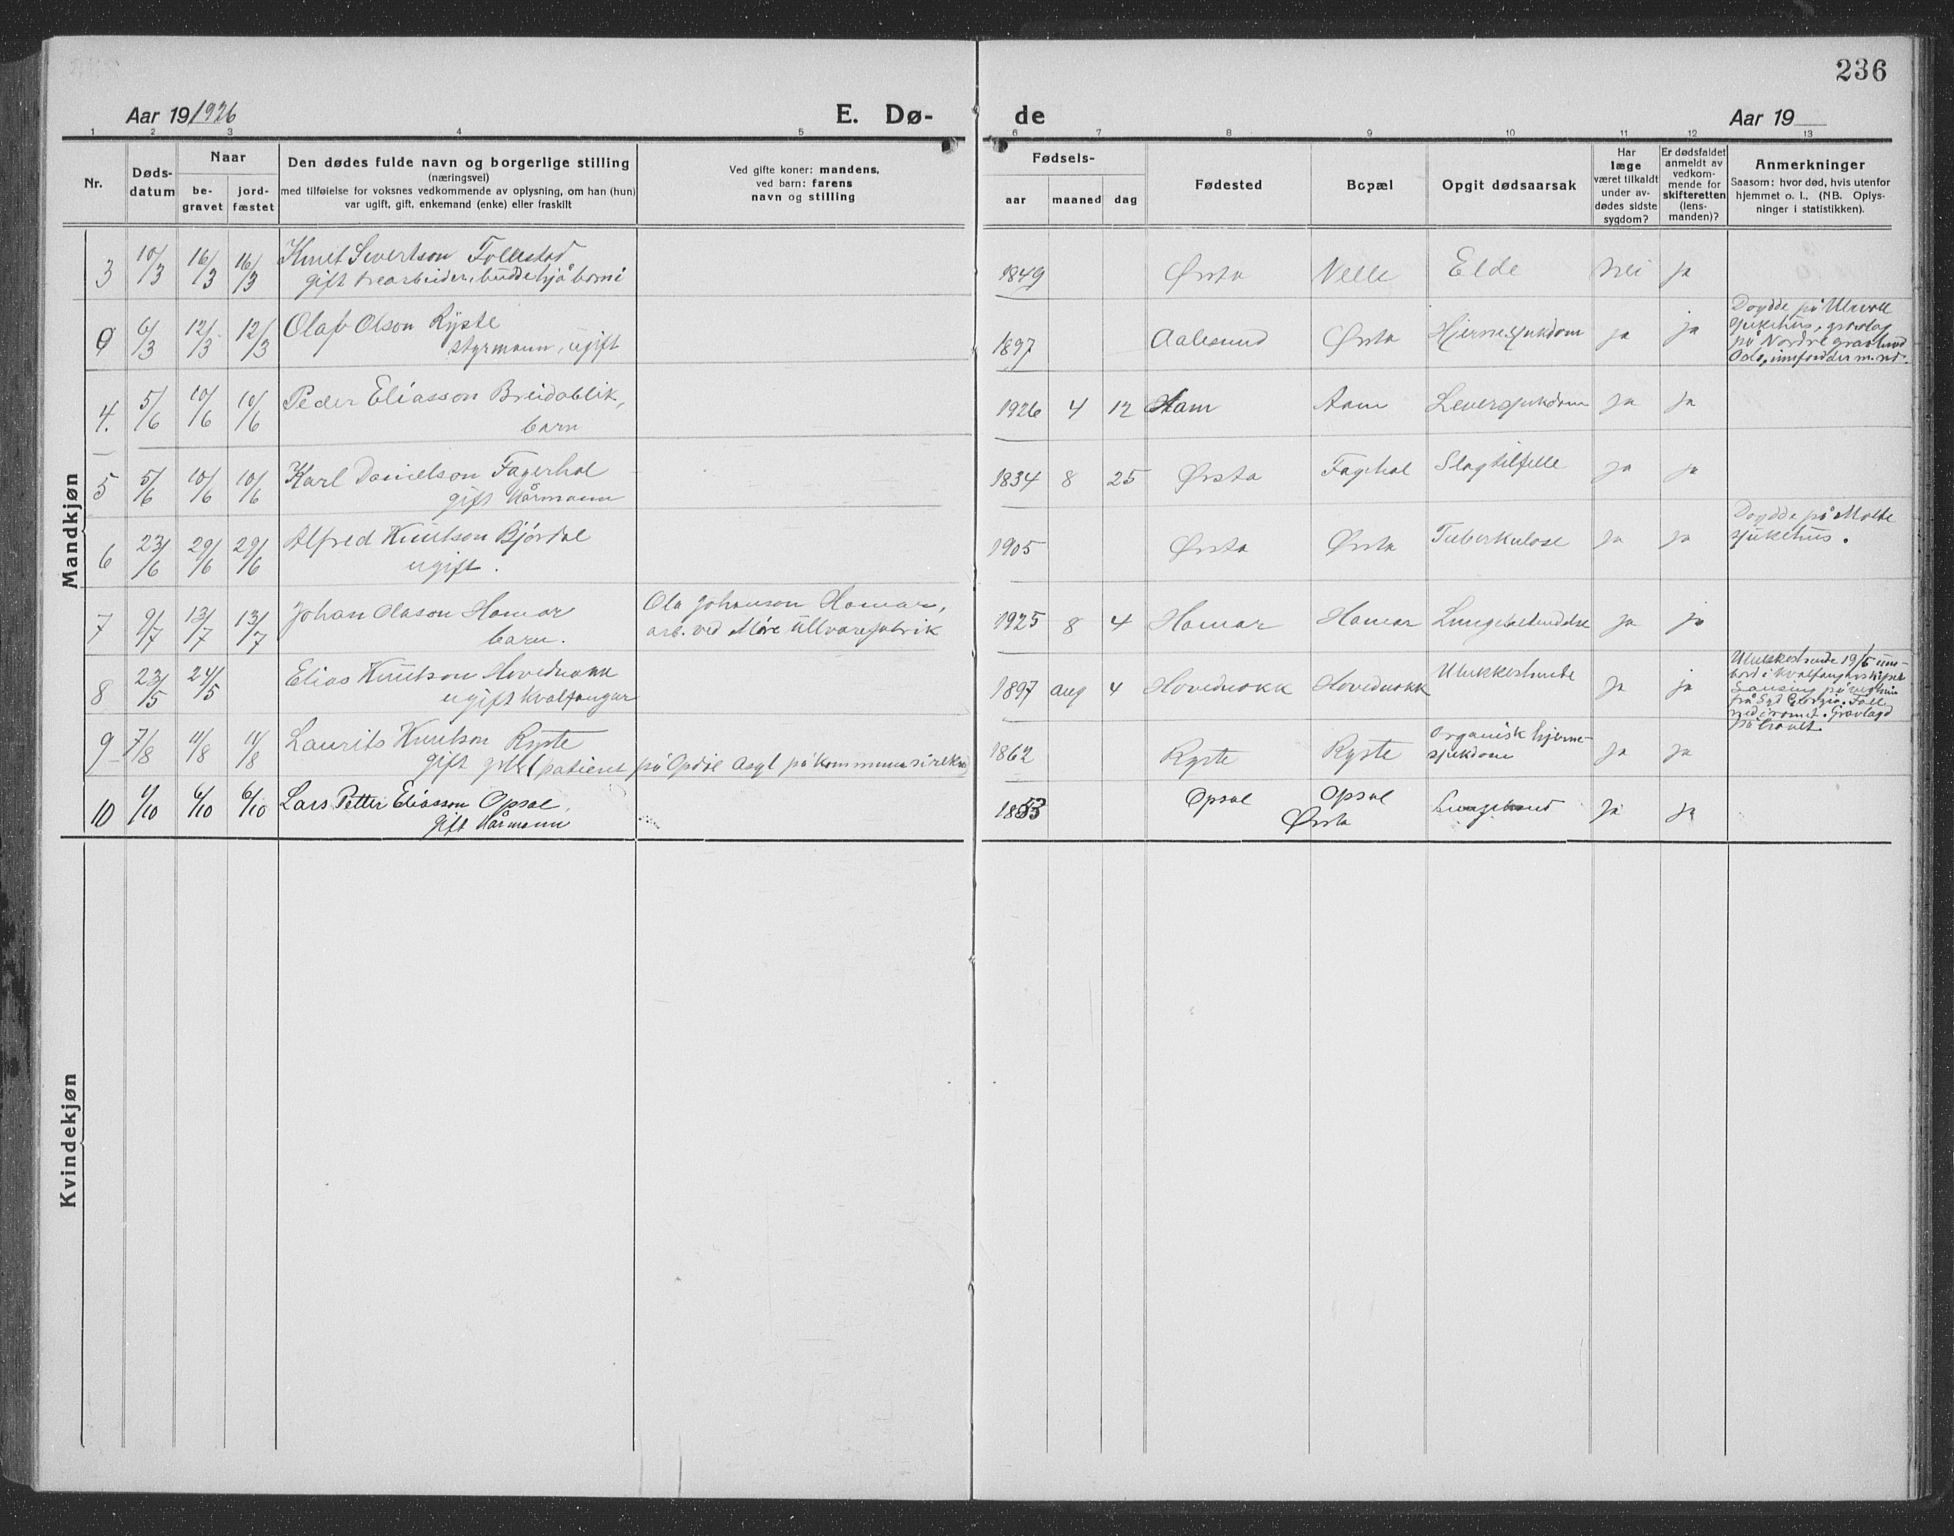 236
Aar 19 1926
E. Dø-
de
Aar 19
1 2 3 4 5 6 7 8 9 10 11 12 13
Nr.
Døds-
datum
Naar
be-
gravet
jord-
fæstet
Den dødes fulde navn og borgerlige stilling
(næringsvei)
med tilføielse for voksnes vedkommende av oplysning, om han (hun)
var ugift, gift, enkemand (enke) eller fraskilt
Ved gifte koner: mandens,
ved barn: farens
navn og stilling
Fødsels-
aar
maaned
dag
Fødested
Bopæl
Opgit dødsaarsak
Har
læge
været tilkaldt
under av-
dødes sidste
sygdom?
Er dødsfaldet
anmeldt av
vedkom-
mende for
skifteretten
(lens-
manden)?
Anmerkninger
Saasom: hvor død, hvis utenfor
hjemmet o. l., (NB. Oplys-
ninger i statistikken).
Mandkjøn
3 10/3 16/3 16/3 Knut Sivertson Follestad
gift trearbeider, budde hjå borni
1849 Ørsta Velle Elde Nei ja
0 6/3 12/3 12/3 Olaf Olson Ryste
styrmann, ugift
1897 Aalesund Ørsta Hjernesjukdom ja ja
Doydde på Ulevoll
sjukehus, gravlag
på Nordre gravlund
4. 5/6 10/6 10/6 Peder Eliasson Breidablik,
barn
1926 4 12 Aam Aam Leversjukdom ja ja
5 5/6 10/6 10/6 Karl Danielson Fagerhol
gift kårmann
1834 8 25 Ørsta Fagerhol Slagtilfelle ja ja
6 23/6 29/6 29/6 Alfred Knutson Bjørdal
ugift.
1905 Ørsta Ørsta Tuberkulose ja ja
Doydde på Molde
sjukehus.
7 9/7 13/7 13/7 Johan Olason Hamar
barn.
Ola Johanson Hamar,
arb. ved Møre ullvarefabrik
1925 8 4 Hamar Hamar Lungebetendelse ja ja
8 23/5 24/5 Elias Knutson Hovednakk
ugift kvalfangar
1897 aug 4 Hovednakk Hovednakk Ulukkeshende ja ja
Ulukkeshende 19/5 um-
bord i kvalfangarskipet
Lansing på veg heim
frå Syd Georgia. Fall
ned i romet. Gravlagd
på havet
9 7/8 11/8 11/8 Laurits Knutson Ryste
gift patient på Opdøl Asyl på kommunens rekning
1862 Ryste Ryste Organisk hjerne-
sjukdom ja ja
10 1/10 6/10 6/10 Lars Petter Eliasson Opsal,
gift kårmann
1853 Opsal Opsal
Ørsta
ja ja
Kvindekjøn